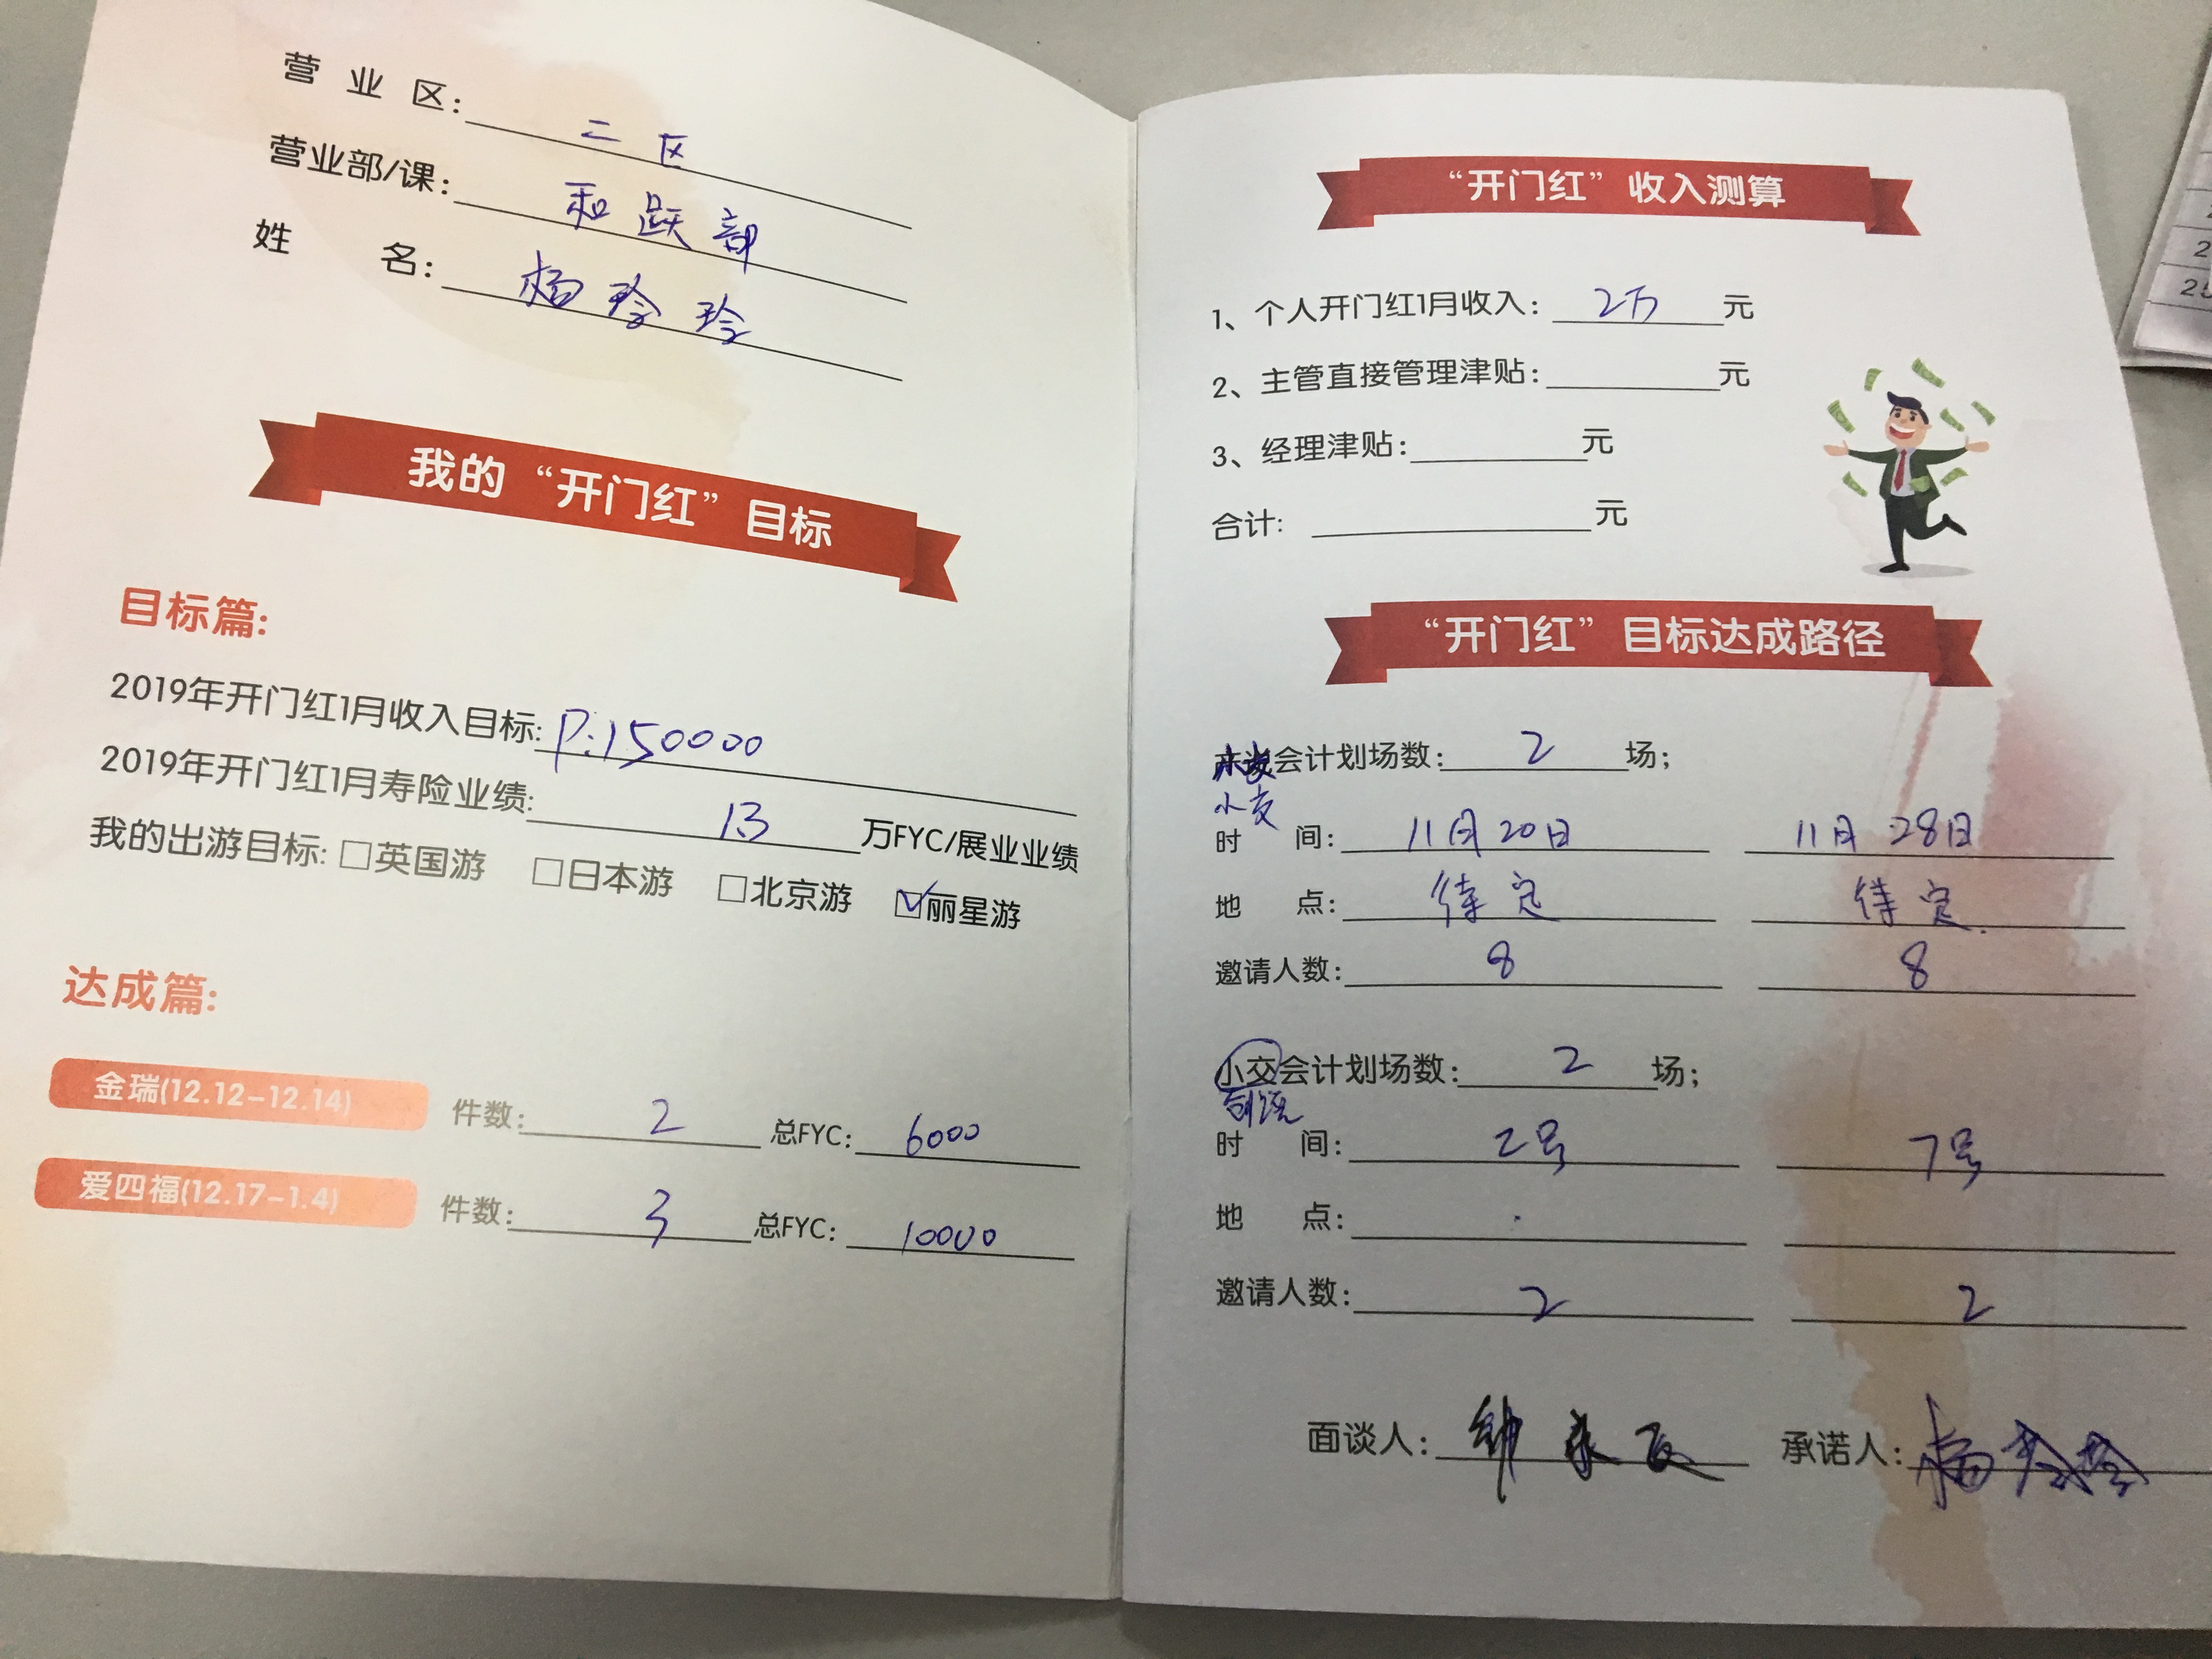 营 业 区: 二 区
营业部/课: 和 跃 部
姓 名: 杨 玲 玲
我的 “开门红” 目标
目标篇:
2019年开门红1月收入目标: P:150000
2019年开门红1月寿险业绩: 1.3 万FYC/展业业绩
我的出游目标: □英国游 □日本游 □北京游 ☑丽星游
达成篇:
金瑞(12.12-12.14) 件数: 2 总FYC: 6000
爱四福(12.17-1.4) 件数: 3 总FYC: 10000
“开门红” 收入测算
1、个人开门红1月收入: 2万 元
2、主管直接管理津贴: 元
3、经理津贴: 元
合计: 元
“开门红” 目标达成路径
会计划场数: 2 场;
小交
时 间: 11月20日 11月28日
地 点: 待定 待定.
邀请人数: 8 8
小交会计划场数: 2 场;
时 间: 2号 7号
地 点:
邀请人数: 2 2
面谈人: 承诺人: 杨玲玲